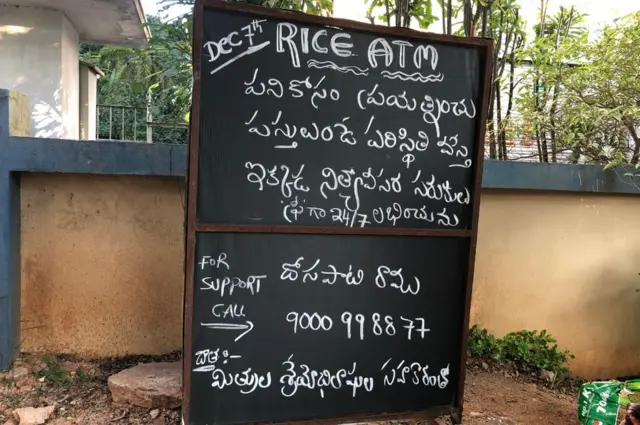 Dec 7th RICE ATM
పనికోసం ప్రయత్నించు
పస్తులుండే పరిస్థితి వస్తే
ఇక్కడ నిత్యావసర సరుకులు
ఫ్రీ గా 24/7 లభించును
FOR SUPPORT CALL →
దోసపాటి రాము
9000 99 88 77
దాత :-
మిత్రుల శ్రేయోభిలాషుల సహకారంతో